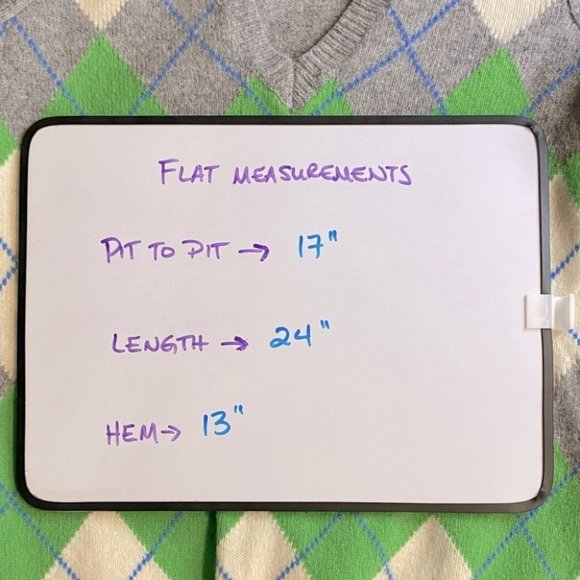 FLAT MEASUREMENTS
PIT TO PIT → 17"
LENGTH → 24"
HEM → 13"